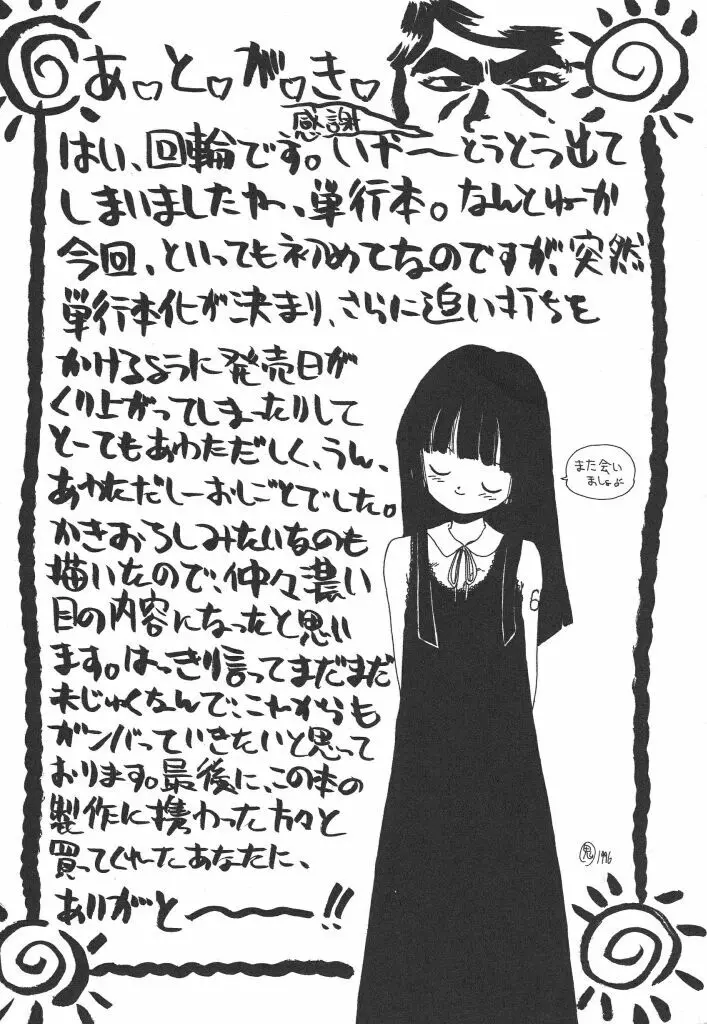 あ♡と♡が♡き♡
感謝
はい、回輪です。いや〜とうとう出て
しまいましたねー、単行本。なんとゆーか
今回、といっても初めてなのですが、突然
単行本化が決まり、さらに追い打ちを
かけるように発売日が
くり上がってしまったりして
とーてもあわただしく、うん、
あわただしーおしごとでした。
かきおろしみたいなのも
描いたので、仲々濃い
目の内容になったと思い
ます。はっきり言ってまだまだ
未じゅくなんで、これからも
ガンバっていきたいと思って
おります。最後に、この本の
製作に携わった方々と
買ってくれたあなたに、
ありがと〜!!
また会い
ましょよ
6
鬼 1996